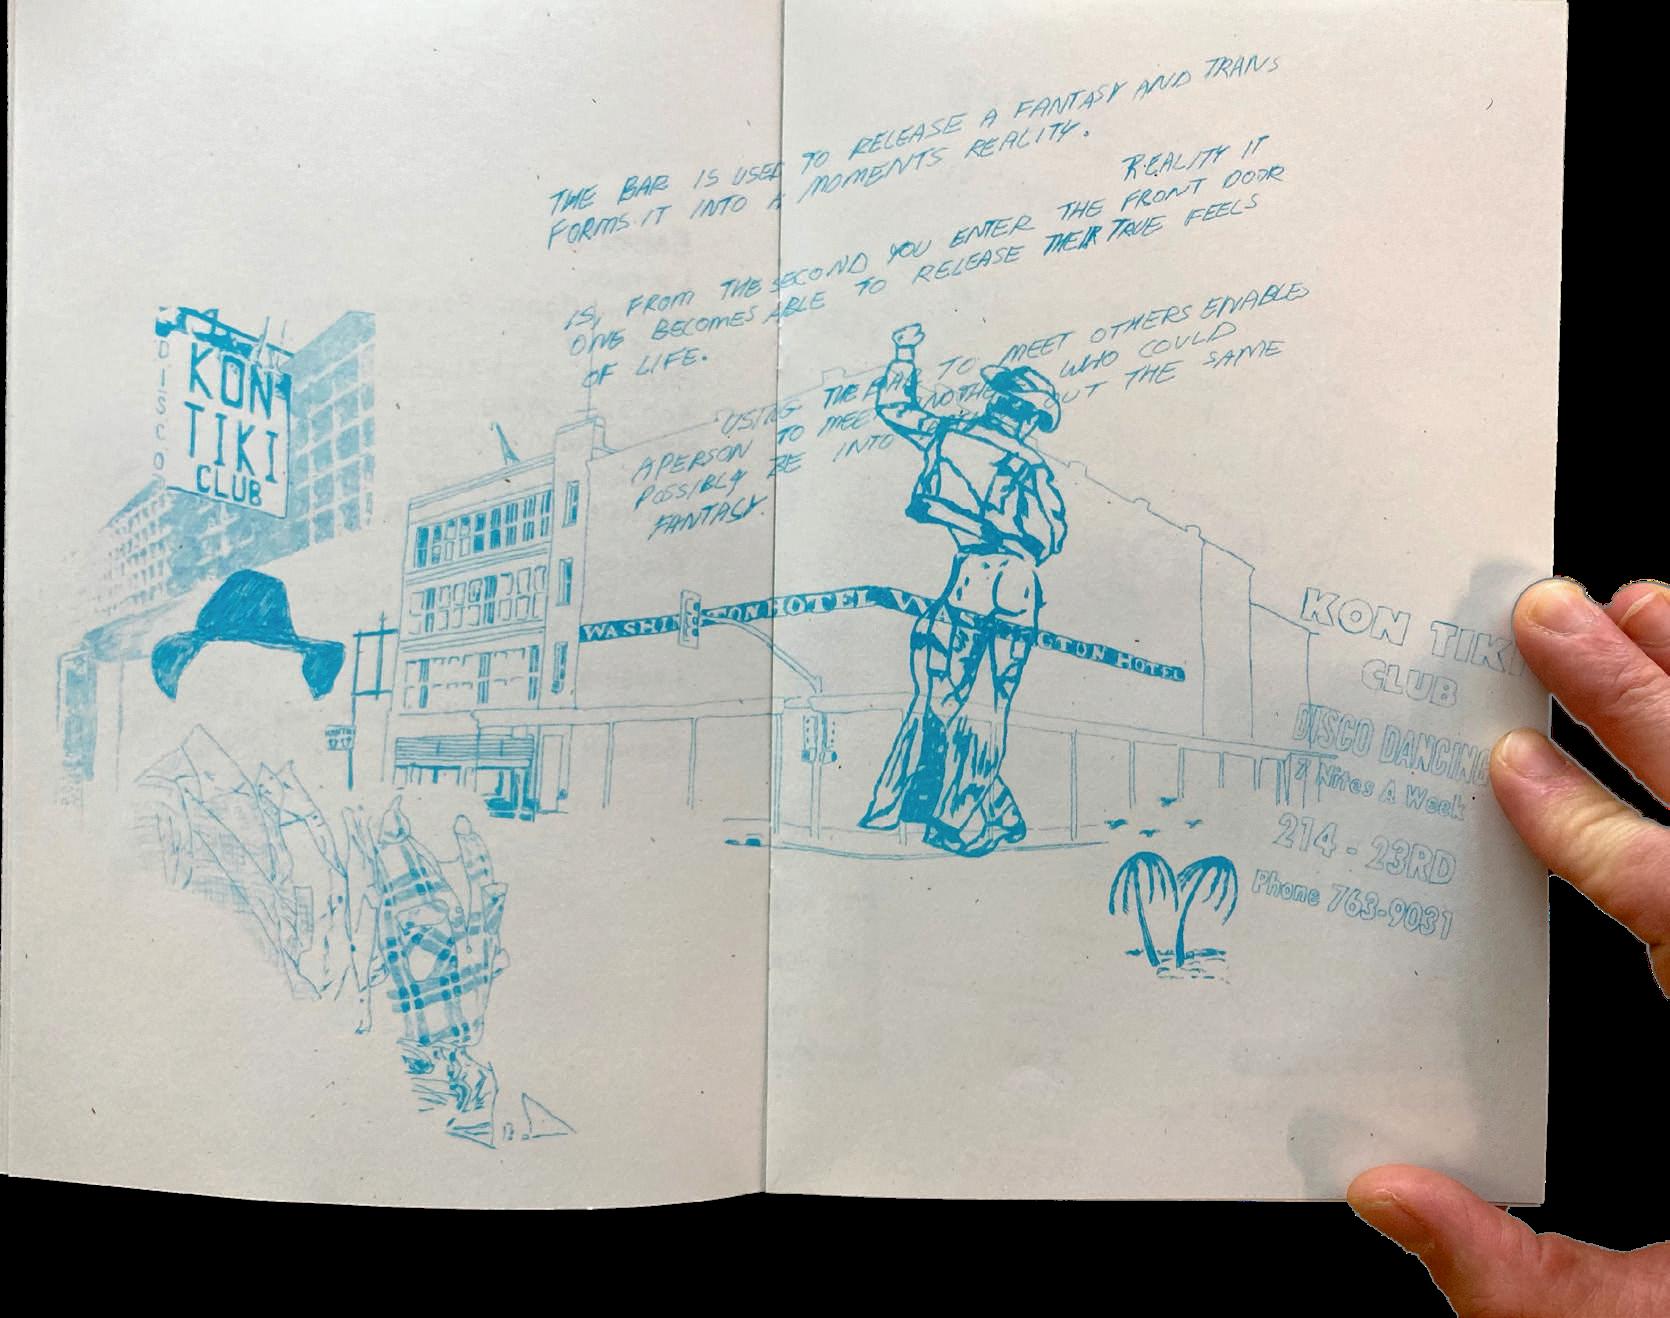 THE BAR IS USED TO RELEASE A FANTASY AND TRANS
FORMS IT INTO A MOMENTS REALITY.
REALITY IT
IS, FROM THE SECOND YOU ENTER THE FRONT DOOR
ONE BECOMES ABLE TO RELEASE THEIR TRUE FEELS
OF LIFE.
USING THE BAR TO MEET OTHERS ENABLES
A PERSON TO MEET ANOTHER WHO COULD
POSSIBLY BE INTO OUT THE SAME
FANTASY.
DISCO
KON
TIKI
CLUB
WASHINGTON HOTEL WASHINGTON HOTEL
KON TIKI
CLUB
DISCO DANCING
7 Nites A Week
214-23RD
Phone 763-9031